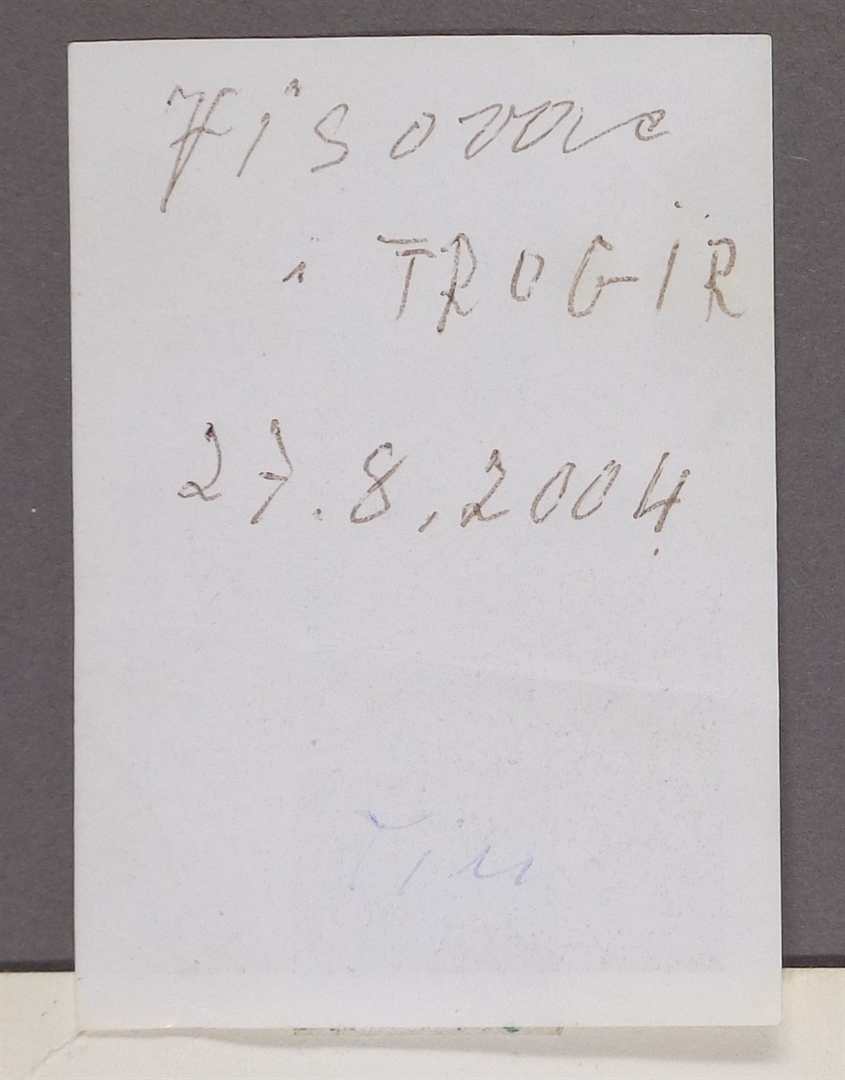 Visovac
i TROGIR
27.8.2004